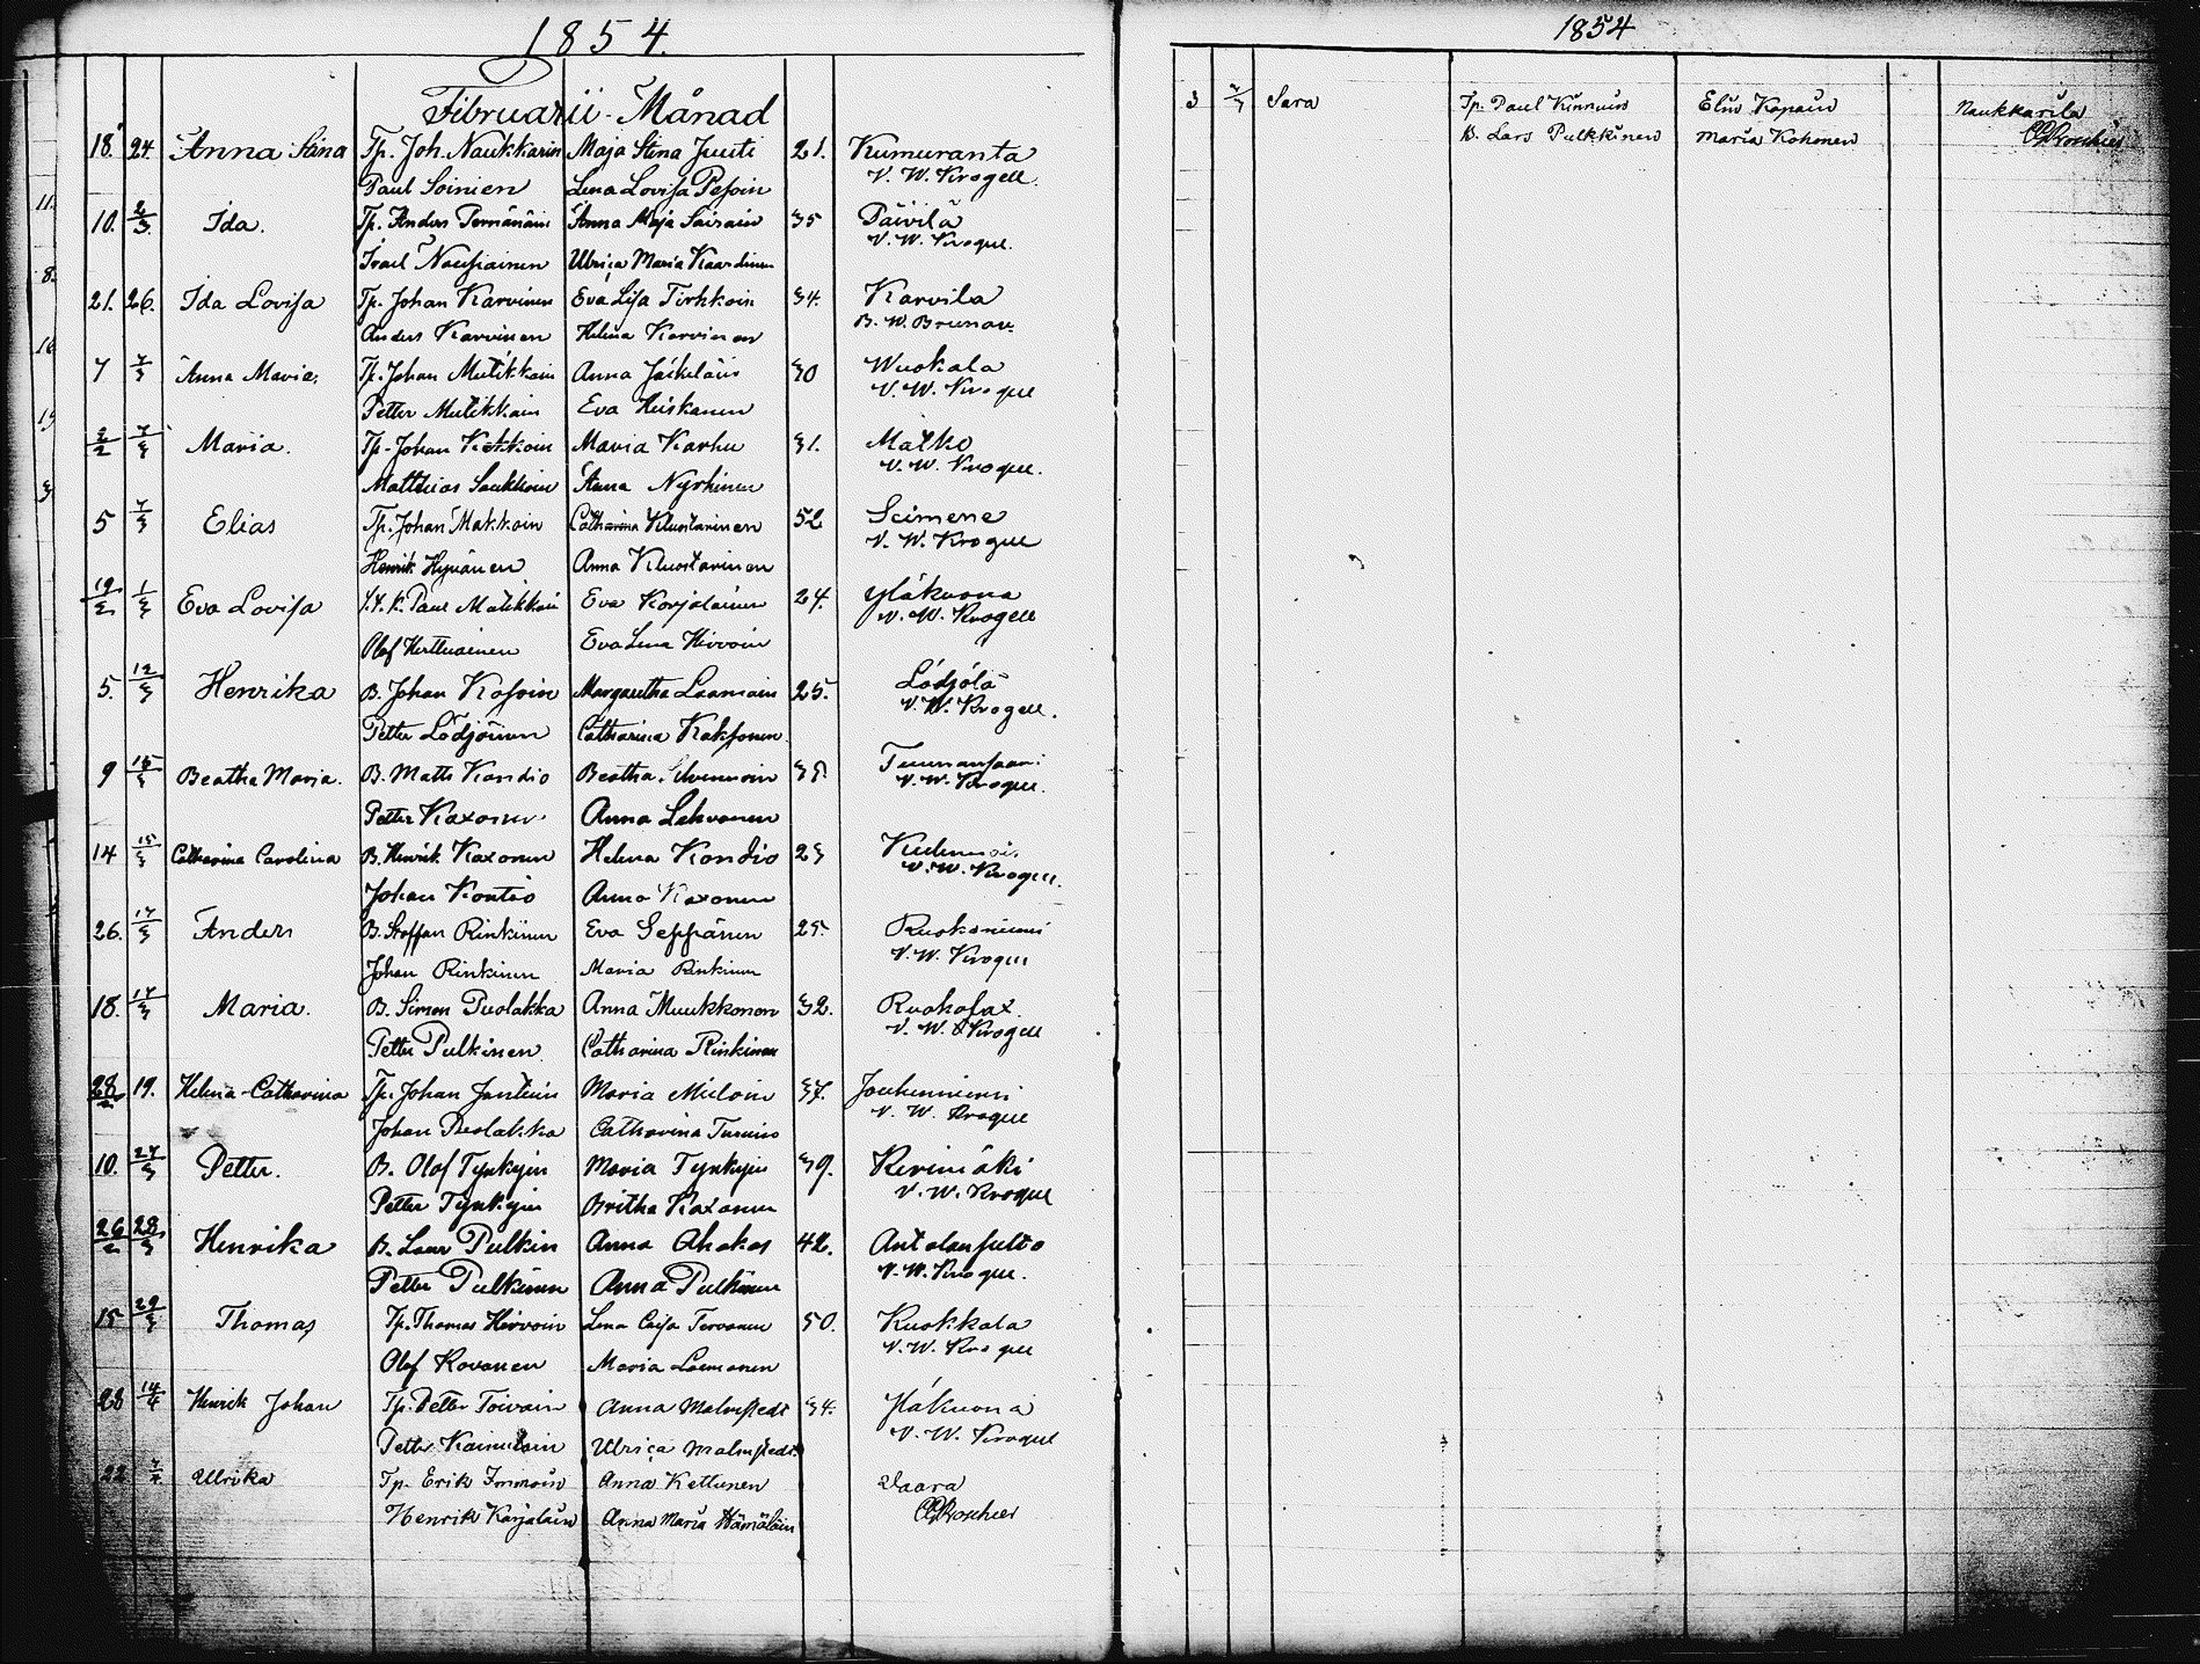 1854.
Februarii-Månad
18. 24. Anna Stina Tp. Joh. Naukkarin Maja Stina Juuti 21. Kumuranta
Paul Soinien Lena Lovisa Pesoin V. W. Krogell.
10. 2/3 Ida. Tp. Anders Pernänäin Anna Maja Säisäin 35 Päivilä
Israel Nousiainen Ulrica Maria V. W. Krogell.
21. 26. Ida Lovisa Tp. Johan Karvinen Eva Lisa Tirkkoin 34. Karvila
Anders Karvinen Helena Karvinen B. W.
7 7/3 Anna Maria. Tp. Johan Mutikkain Anna Jäikeläin 30 Wuokala
Petter Mutikkain Eva Heiskanen V. W. Krogell
2/2 7/3 Maria. Tp. Johan Kokkoin Maria Karhu 31. Matko
Matthias Saukkoin Anna Nyrhinen V. W. Krogell.
5 7/3 Elias Tp. Johan Makkoin Catharina Kluostarinen 52
Henrik Hyvänen Anna Kluostarinen V. W. Krogell
19/2 1/3 Eva Lovisa Paul Mutikkain Eva Korjolainen 24. Yläkuona
Olof Herttuainen Eva Lena Hirvoin V. W. Krogell
5. 12/3 Henrika B. Johan Kosoin Margaretha Laamain 25. Lödjölä
Petter Lödjöinen Catharina Kaksonen V. W. Krogell.
9 15/3 Beatha Maria. B. Matts Kondio Beatha Silvennoin
Petter Kaxonen Anna Lehvonen V. W. Krogell.
14 15/3 Catharina Carolina B. Henrik Kaxonen Helena Kondio 23
Johan Kontio Anna Kaxonen V. W. Krogell.
26. 17/3 Anders B. Staffan Rinkinen Eva Seppänen 25. Ruokoniemi
Johan Rinkinen Maria Rinkinen V. W. Krogell
18. 17/3 Maria. B. Simon Puolakka Anna Muukkonen 32. Ruokolax.
Petter Pulkinen. Catharina Rinkinen V. W. Krogell
28/2 19. Helena Catharina Tp. Johan Jantuin Maria Miiloin 37. Jouhenniemi
Johan Puolakka Catharina Turuin V. W. Krogell
10. 27/3 Petter. B. Olof Tynkyin Maria Tynkyin 39. Kerimäki
Petter Tynkyin Britha Kaxonen V. W. Krogell
26/2 28/3 Henrika B. Lars Pulkin Anna Ahokas 42. Antolansulto
Petter Pulkinen Anna Pulkinen V. W. Krogell.
15 29/3 Thomas Tp. Thomas Hirvoin Lena Caisa Tervonen 50. Kuokkala
Olof Kovanen Maria Laamanen V. W. Krogell
28 14/4 Henrik Johan Tp. Petter Toivain Anna Malmstedt 34. Yläkuona
Petter Kainulain Ulrica Malmstedt. V. W. Krogell
22 7/7 Ulrika Tp. Erik Immoin Anna Kettunen Vaara
Henrik Karjalain Anna Maria Hämäläin
11.
8.
16
15
3
1854
3 7/7 Sara Tp. Paul Kinnuin Elin Kopain Naukkarila
B. Lars Pulkkinen Maria Kohonen